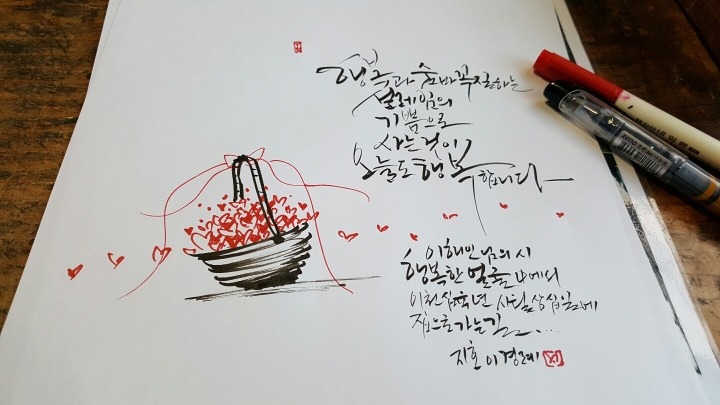 행복과 숨바꼭질하는
설레임의
기쁨으로
사는것이
오늘도 행복합니다
이해인님의 시
행복한 얼굴 中에서
이천십육년 사월삼십일에
집으로가는길.....
지호 이경례